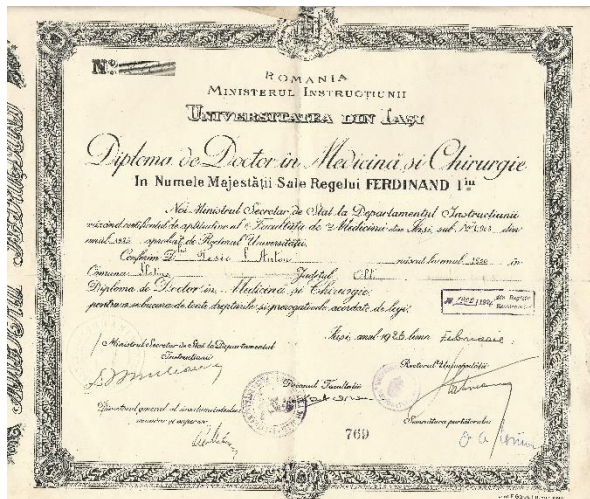 Nº
ROMANIA
MINISTERUL INSTRUCȚIUNII
UNIVERSITATEA DIN IAȘI
Diploma de Doctor în Medicină și Chirurgie
In Numele Majestății Sale Regelui FERDINAND Iiu
Noi Ministrul Secretar de Stat la Departamentul Instrucțiunii
văzând certificatul de aptitudine al Facultăței de Medicină din Iași, sub No. din
anul aprobat de Rectorul Universităței
Conferim Dlui Anton născut în anul în
Comuna Slatina Județul Olt
Diploma de Doctor în Medicină și Chirurgie
pentru a se bucura de toate drepturile și prerogativele acordate de legi.
din Registr
Iași, anul 1926 luna Februarie
Ministrul Secretar de Stat la Departamentul
Instrucțiunii
Rectorul Universității
Decanul Facultății
Directorul general al
și superior
Semnătura purtătorului
769